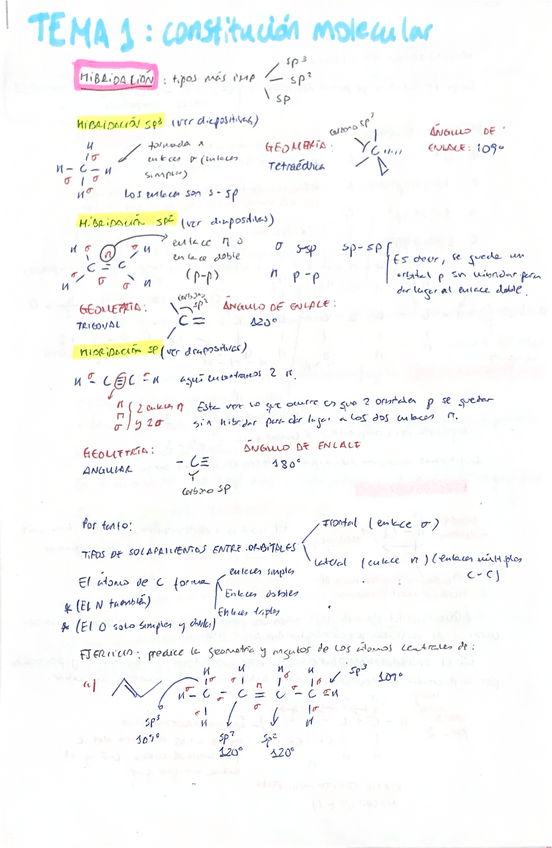 TEMA 1: constitución molecular
HIBRIDACIÓN : tipos más imp
sp³
sp²
sp
HIBRIDACIÓN sp³ (ver diapositivas)
formada x
enlaces σ (enlaces
simples)
Los enlaces son s-sp
GEOMETRÍA:
Tetraédrica
carbono sp³
C
ÁNGULO DE
ENLACE: 109º
HIBRIDACIÓN sp² (ver diapositivas)
enlace π o
enlace doble
(p-p)
σ s-sp sp-sp
π p-p
Es decir, se queda un
orbital p sin hibridar para
dar lugar al enlace doble.
GEOMETRÍA:
TRIGONAL
carbono
sp²
C =
ÁNGULO DE ENLACE:
120º
HIBRIDACIÓN sp (ver diapositivas)
H - C ≡ C - H aquí encontramos 2 π.
π
π
σ
2 enlaces π
y 2σ
Esta vez lo que ocurre es que 2 orbitales p se quedan
sin hibridar para dar lugar a los dos enlaces π.
GEOMETRÍA:
ANGULAR
- C ≡
carbono sp
ÁNGULO DE ENLACE
180º
Por tanto:
TIPOS DE SOLAPAMIENTOS ENTRE ORBITALES
Frontal (enlace σ)
Lateral (enlace π) (enlaces múltiples
C-C)
El átomo de C forma
enlaces simples
Enlaces dobles
Enlaces triples
* (El N también)
* (El O solo simples y dobles)
EJERCICIO: predice la geometría y ángulos de los átomos centrales de:
a)
H H H H
H - C - C = C - C - H
H H
sp³
109º
sp²
120º
sp²
120º
sp³ 109º